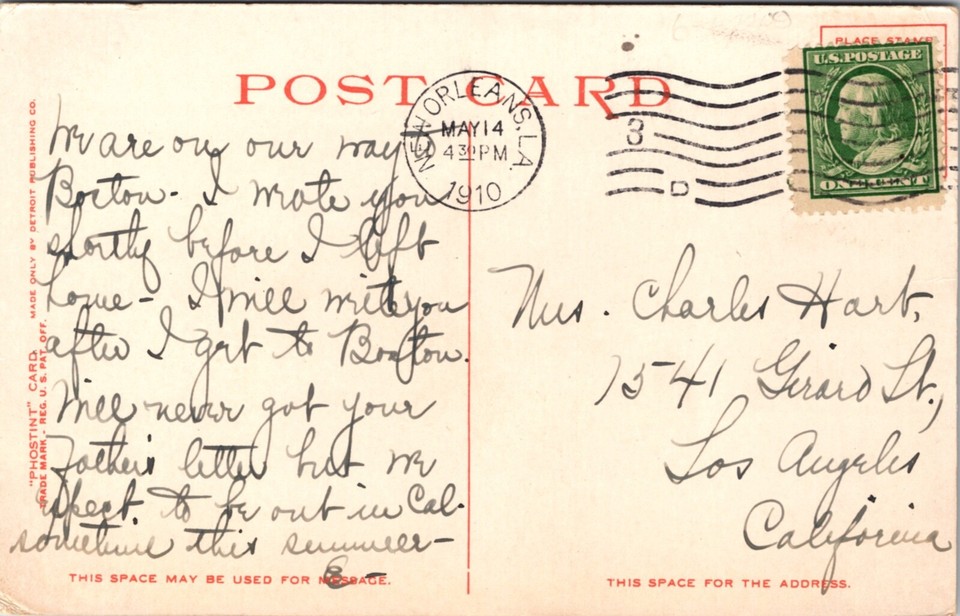 PLACE STAMP
U.S. POSTAGE
ONE CENT
POST CARD
NEW ORLEANS, LA.
MAY 14
4 30 PM
1910
3
D
"PHOSTINT" CARD. MADE ONLY BY DETROIT PUBLISHING CO.
TRADE MARK. REG. U. S. PAT. OFF.
We are on our way
Boston - I wrote you
shortly before I left
home - I will write you
after I get to Boston.
Will never got your
Father's letter but we
expect to be out in Cal.
sometime this summer -
Mrs. Charles Hart,
1541 Girard St.,
Los Angeles
California
THIS SPACE MAY BE USED FOR MESSAGE.
THIS SPACE FOR THE ADDRESS.